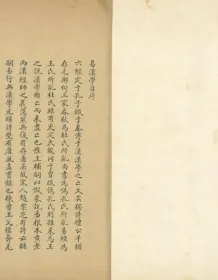 易漢學自序
六經定于孔子燬于秦傳于漢漢學之亡久矣獨詩禮公羊猶
存毛鄭何三家春秋為杜氏所亂尚書為偽孔氏所亂易經為
王氏所亂杜氏雖有更定大校同于賈服偽孔氏則雜采馬王
之說漢學雖亡而未盡亡也惟王輔嗣以假象說易根本黃老
而漢經師之義蕩然無復有存者矣故宋人趙紫芝有詩云輔
嗣易行無漢學暉詩變有唐風蓋實錄也棟曾王父樸菴先